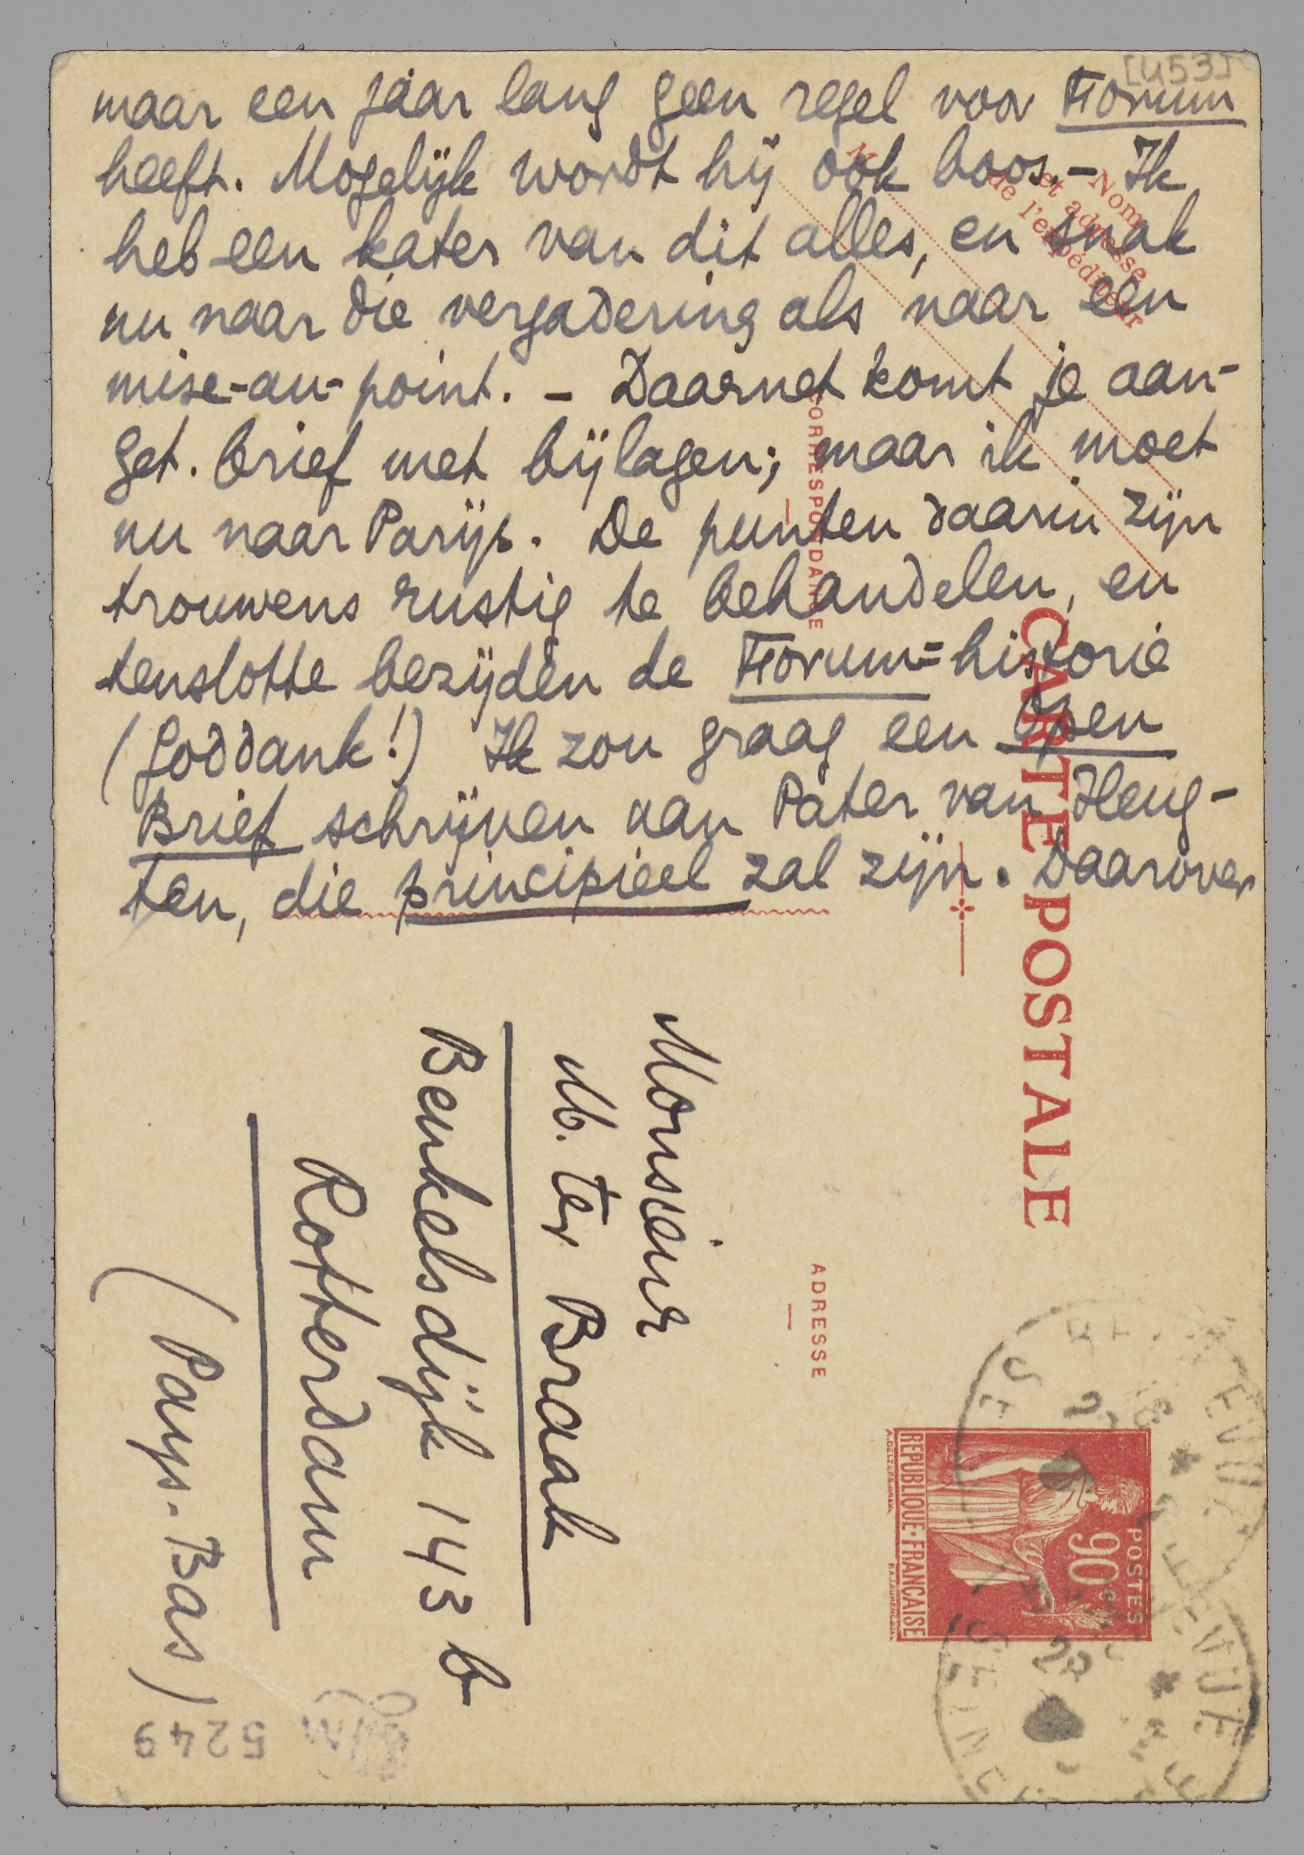 [453]
maar een jaar lang geen regel voor Forum
heeft. Mogelijk wordt hij ook boos. – Ik
heb een kater van dit alles, en snak
nu naar die vergadering als naar een
mise-au-point. – Daarnet komt je aan-
get. brief met bijlagen; maar ik moet
nu naar Parijs. De punten daarin zijn
trouwens rustig te behandelen, en
tenslotte bezijden de Forum-historie
(Goddank!) Ik zou graag een Open
Brief schrijven aan Pater van Heug-
ten, die principieel zal zijn. Daarover
Nom
et adresse
de l'expéditeur
CORRESPONDANCE
CARTE POSTALE
ADRESSE
Monsieur
M. ter Braak
Beukelsdijk 143 b
Rotterdam
(Pays-Bas)
POSTES
90c
REPUBLIQUE·FRANÇAISE
5249